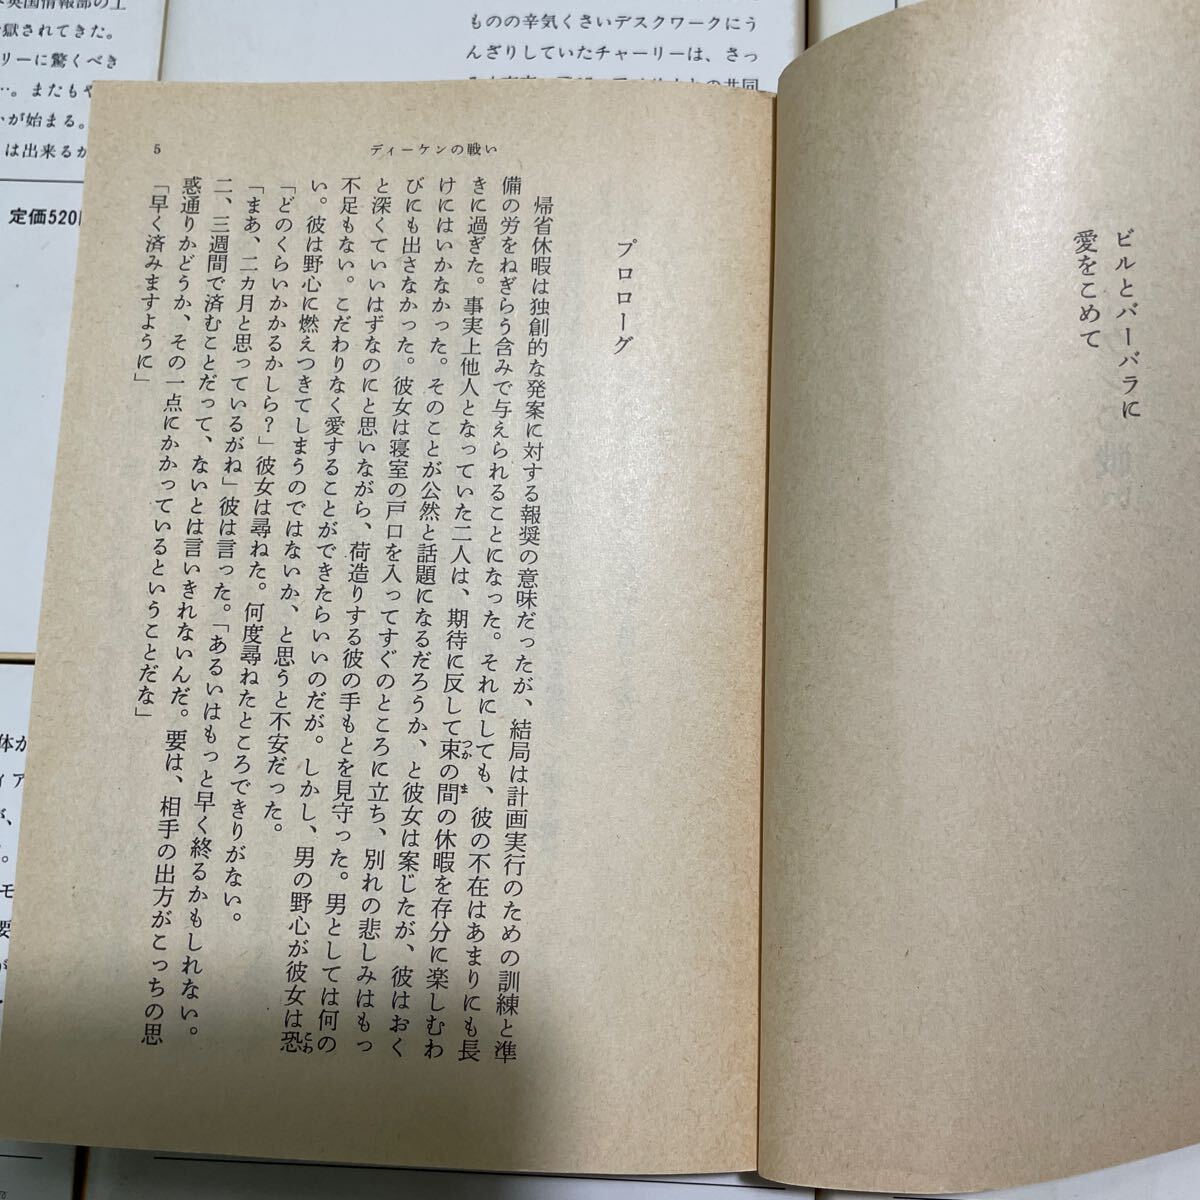 ビルとバーバラに
愛をこめて
ディーケンの戦い
5
プロローグ
帰省休暇は独創的な発案に対する報奨の意味だったが、結局は計画実行のための訓練と準
備の労をねぎらう含みで与えられることになった。それにしても、彼の不在はあまりにも長
きに過ぎた。事実上他人となっていた二人は、期待に反して束の間の休暇を存分に楽しむわ
けにはいかなかった。そのことが公然と話題になるだろうか、と彼女は案じたが、彼はおく
びにも出さなかった。彼女は寝室の戸口を入ってすぐのところに立ち、別れの悲しみはもっ
と深くていいはずなのにと思いながら、荷造りする彼の手もとを見守った。男としては何の
不足もない。こだわりなく愛することができたらいいのだが。しかし、男の野心が彼女は恐
い。彼は野心に燃えつきてしまうのではないか、と思うと不安だった。
「どのくらいかかるかしら？」彼女は尋ねた。何度尋ねたところできりがない。
「まあ、二カ月と思っているがね」彼は言った。「あるいはもっと早く終るかもしれない。
二、三週間で済むことだって、ないとは言いきれないんだ。要は、相手の出方がこっちの思
惑通りかどうか、その一点にかかっているということだな」
「早く済みますように」
つか
ま
こわ
英国情報部の
獄されてきた。
リーに驚くべき
…。またもや
が始まる。
は出来るか
定価520
ものの辛気くさいデスクワークにう
んざりしていたチャーリーは、さっ
体か
ィア
が、
。
モ
要
が